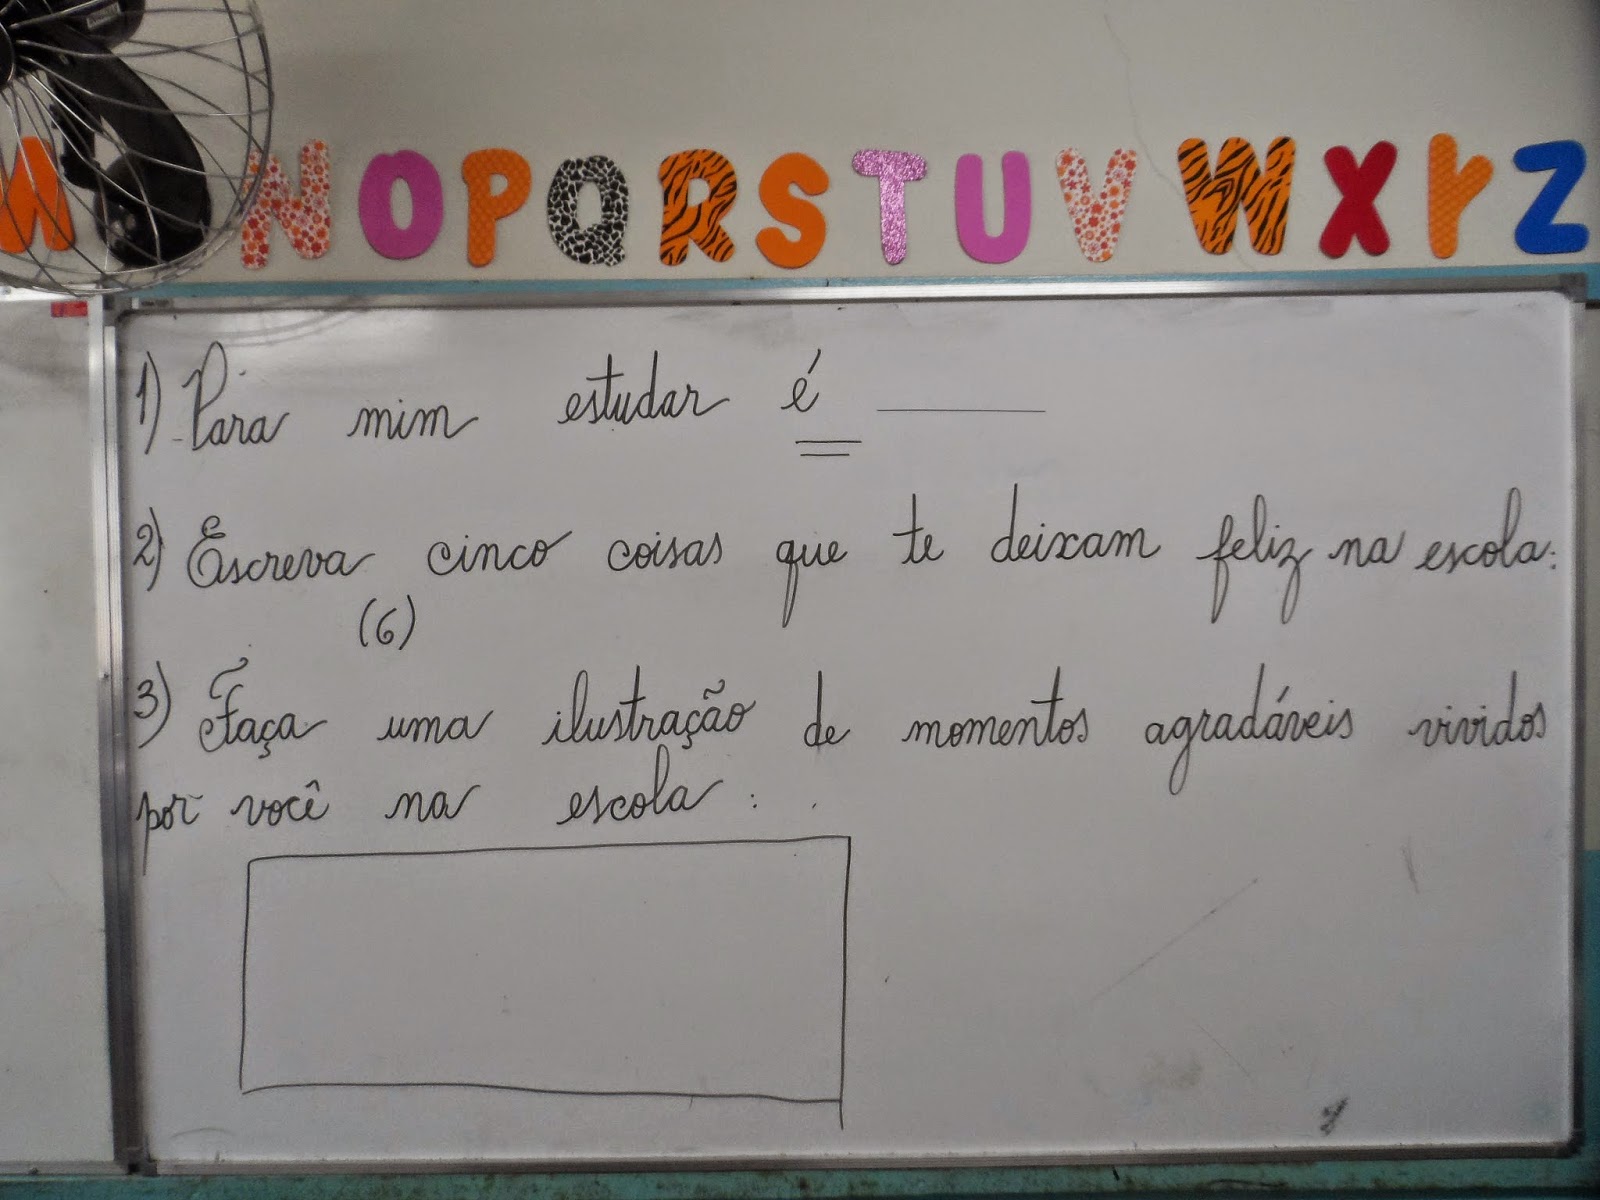 M N O P Q R S T U V W X Y Z
1) Para mim estudar é ______
2) Escreva cinco coisas que te deixam feliz na escola:
(6)
3) Faça uma ilustração de momentos agradáveis vividos
por você na escola: